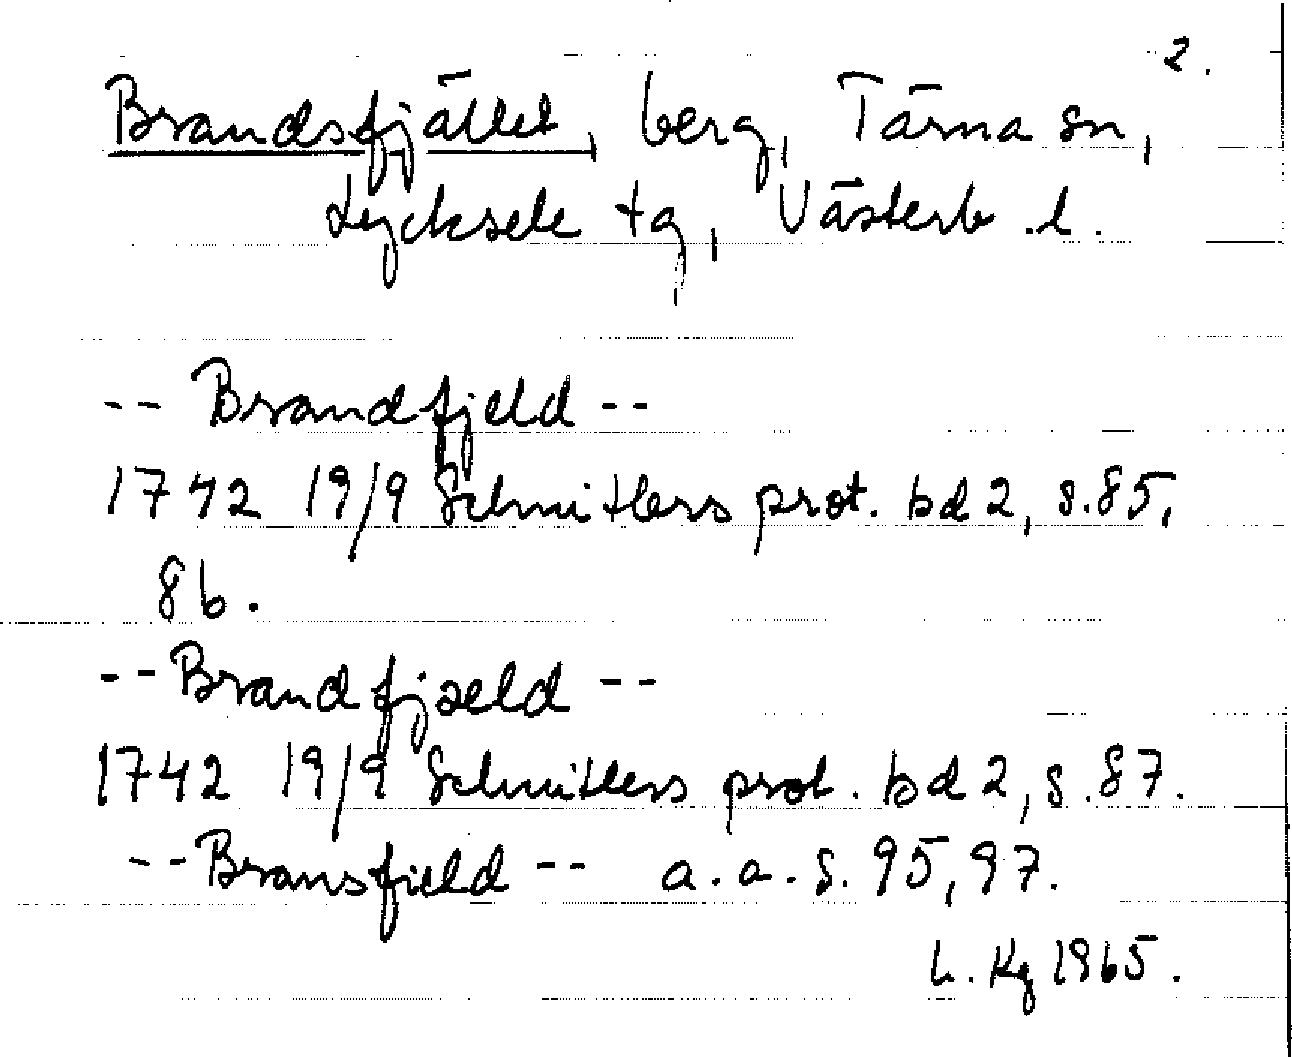 2.
Brandsfjället, berg, Tärna sn,
Lycksele tg, Västerb. l.
-- Brandfjeld --
1742 19/9 Schnitlers prot. bd 2, s. 85,
86.
-- Brandfjæld --
1742 19/9 Schnitlers prot. bd 2, s. 87.
-- Bransfield -- a. a. s. 95, 97.
L. Kg 1965.